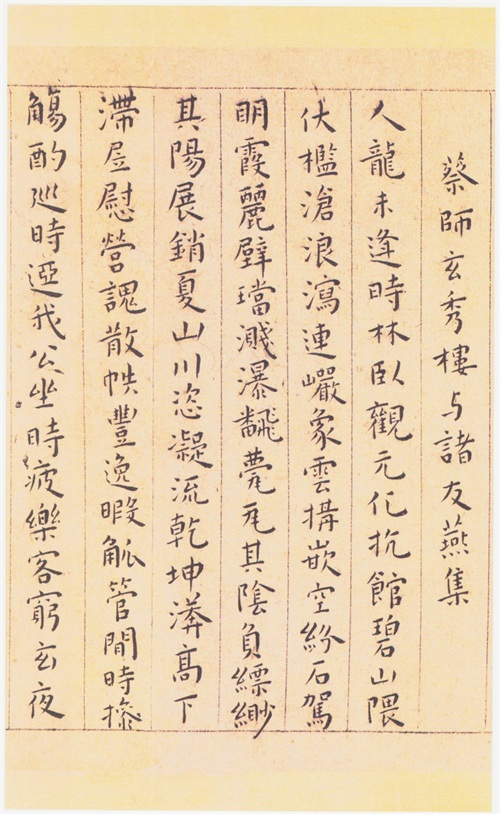 蔡師玄秀樓与諸友燕集
人龍未逢時林臥觀元化抗館碧山隈
伏檻滄浪瀉連巘象雲搆嵌空紛石駕
明霞麗璧璫濺瀑飜甍瓦其陰負縹緲
其陽展銷夏山川恣凝流乾坤漭高下
滯㞐慰營䰟散帙豐逸暇觚管閒時摻
觴酌𨒪時迓我公坐時疲樂客窮玄夜